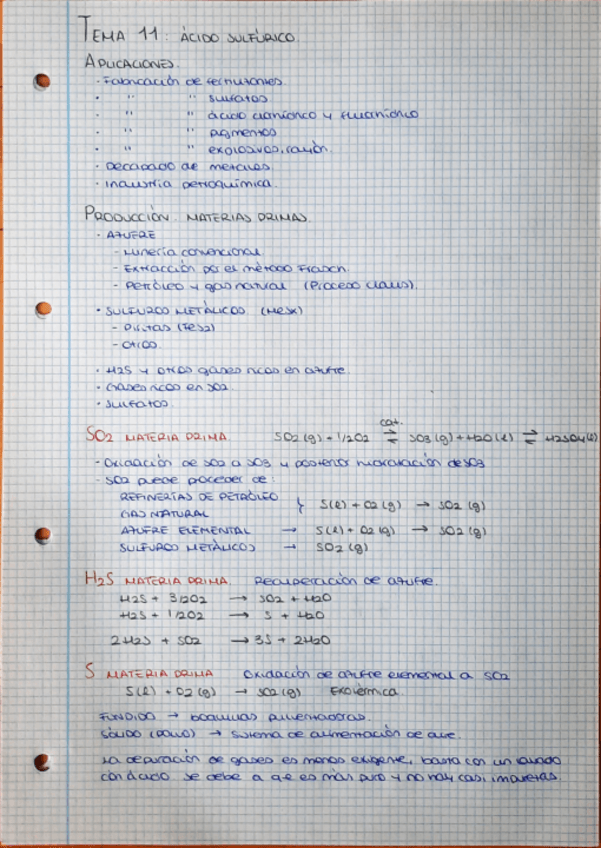 TEMA 11: ÁCIDO SULFÚRICO.
APLICACIONES.
· Fabricación de fertilizantes.
· " " sulfatos
· " " ácido cianhídrico y fluorhídrico
· " " pigmentos
· " " explosivos, rayón.
· Decapado de metales.
· Industria petroquímica.
PRODUCCIÓN. MATERIAS PRIMAS.
· AZUFRE
- Minería convencional
- Extracción por el método Frasch.
- Petróleo y gas natural (Proceso Claus).
· SULFUROS METÁLICOS (MeSx)
- Piritas (FeS2)
- Otros.
· H2S y otros gases ricos en azufre.
· Gases ricos en SO2.
· Sulfatos.
SO2 MATERIA PRIMA SO2 (g) + 1/2O2 cat. ⇌ SO3 (g) + H2O (l) ⇌ H2SO4 (l)
- Oxidación de SO2 a SO3 y posterior hidratación de SO3
- SO2 puede proceder de:
REFINERÍAS DE PETRÓLEO
GAS NATURAL } S(l) + O2 (g) → SO2 (g)
AZUFRE ELEMENTAL → S(l) + O2 (g) → SO2 (g)
SULFUROS METÁLICOS → SO2 (g)
H2S MATERIA PRIMA. Recuperación de azufre.
H2S + 3/2O2 → SO2 + H2O
H2S + 1/2O2 → S + H2O
2H2S + SO2 → 3S + 2H2O
S MATERIA PRIMA Oxidación de azufre elemental a SO2
S(l) + O2 (g) → SO2 (g) Exotérmica.
FUNDIDO → boquillas pulverizadoras.
SÓLIDO (polvo) → Sistema de alimentación de aire.
La depuración de gases es menos exigente, basta con un lavado
con ácido. Se debe a q e es más puro y no hay casi impurezas.